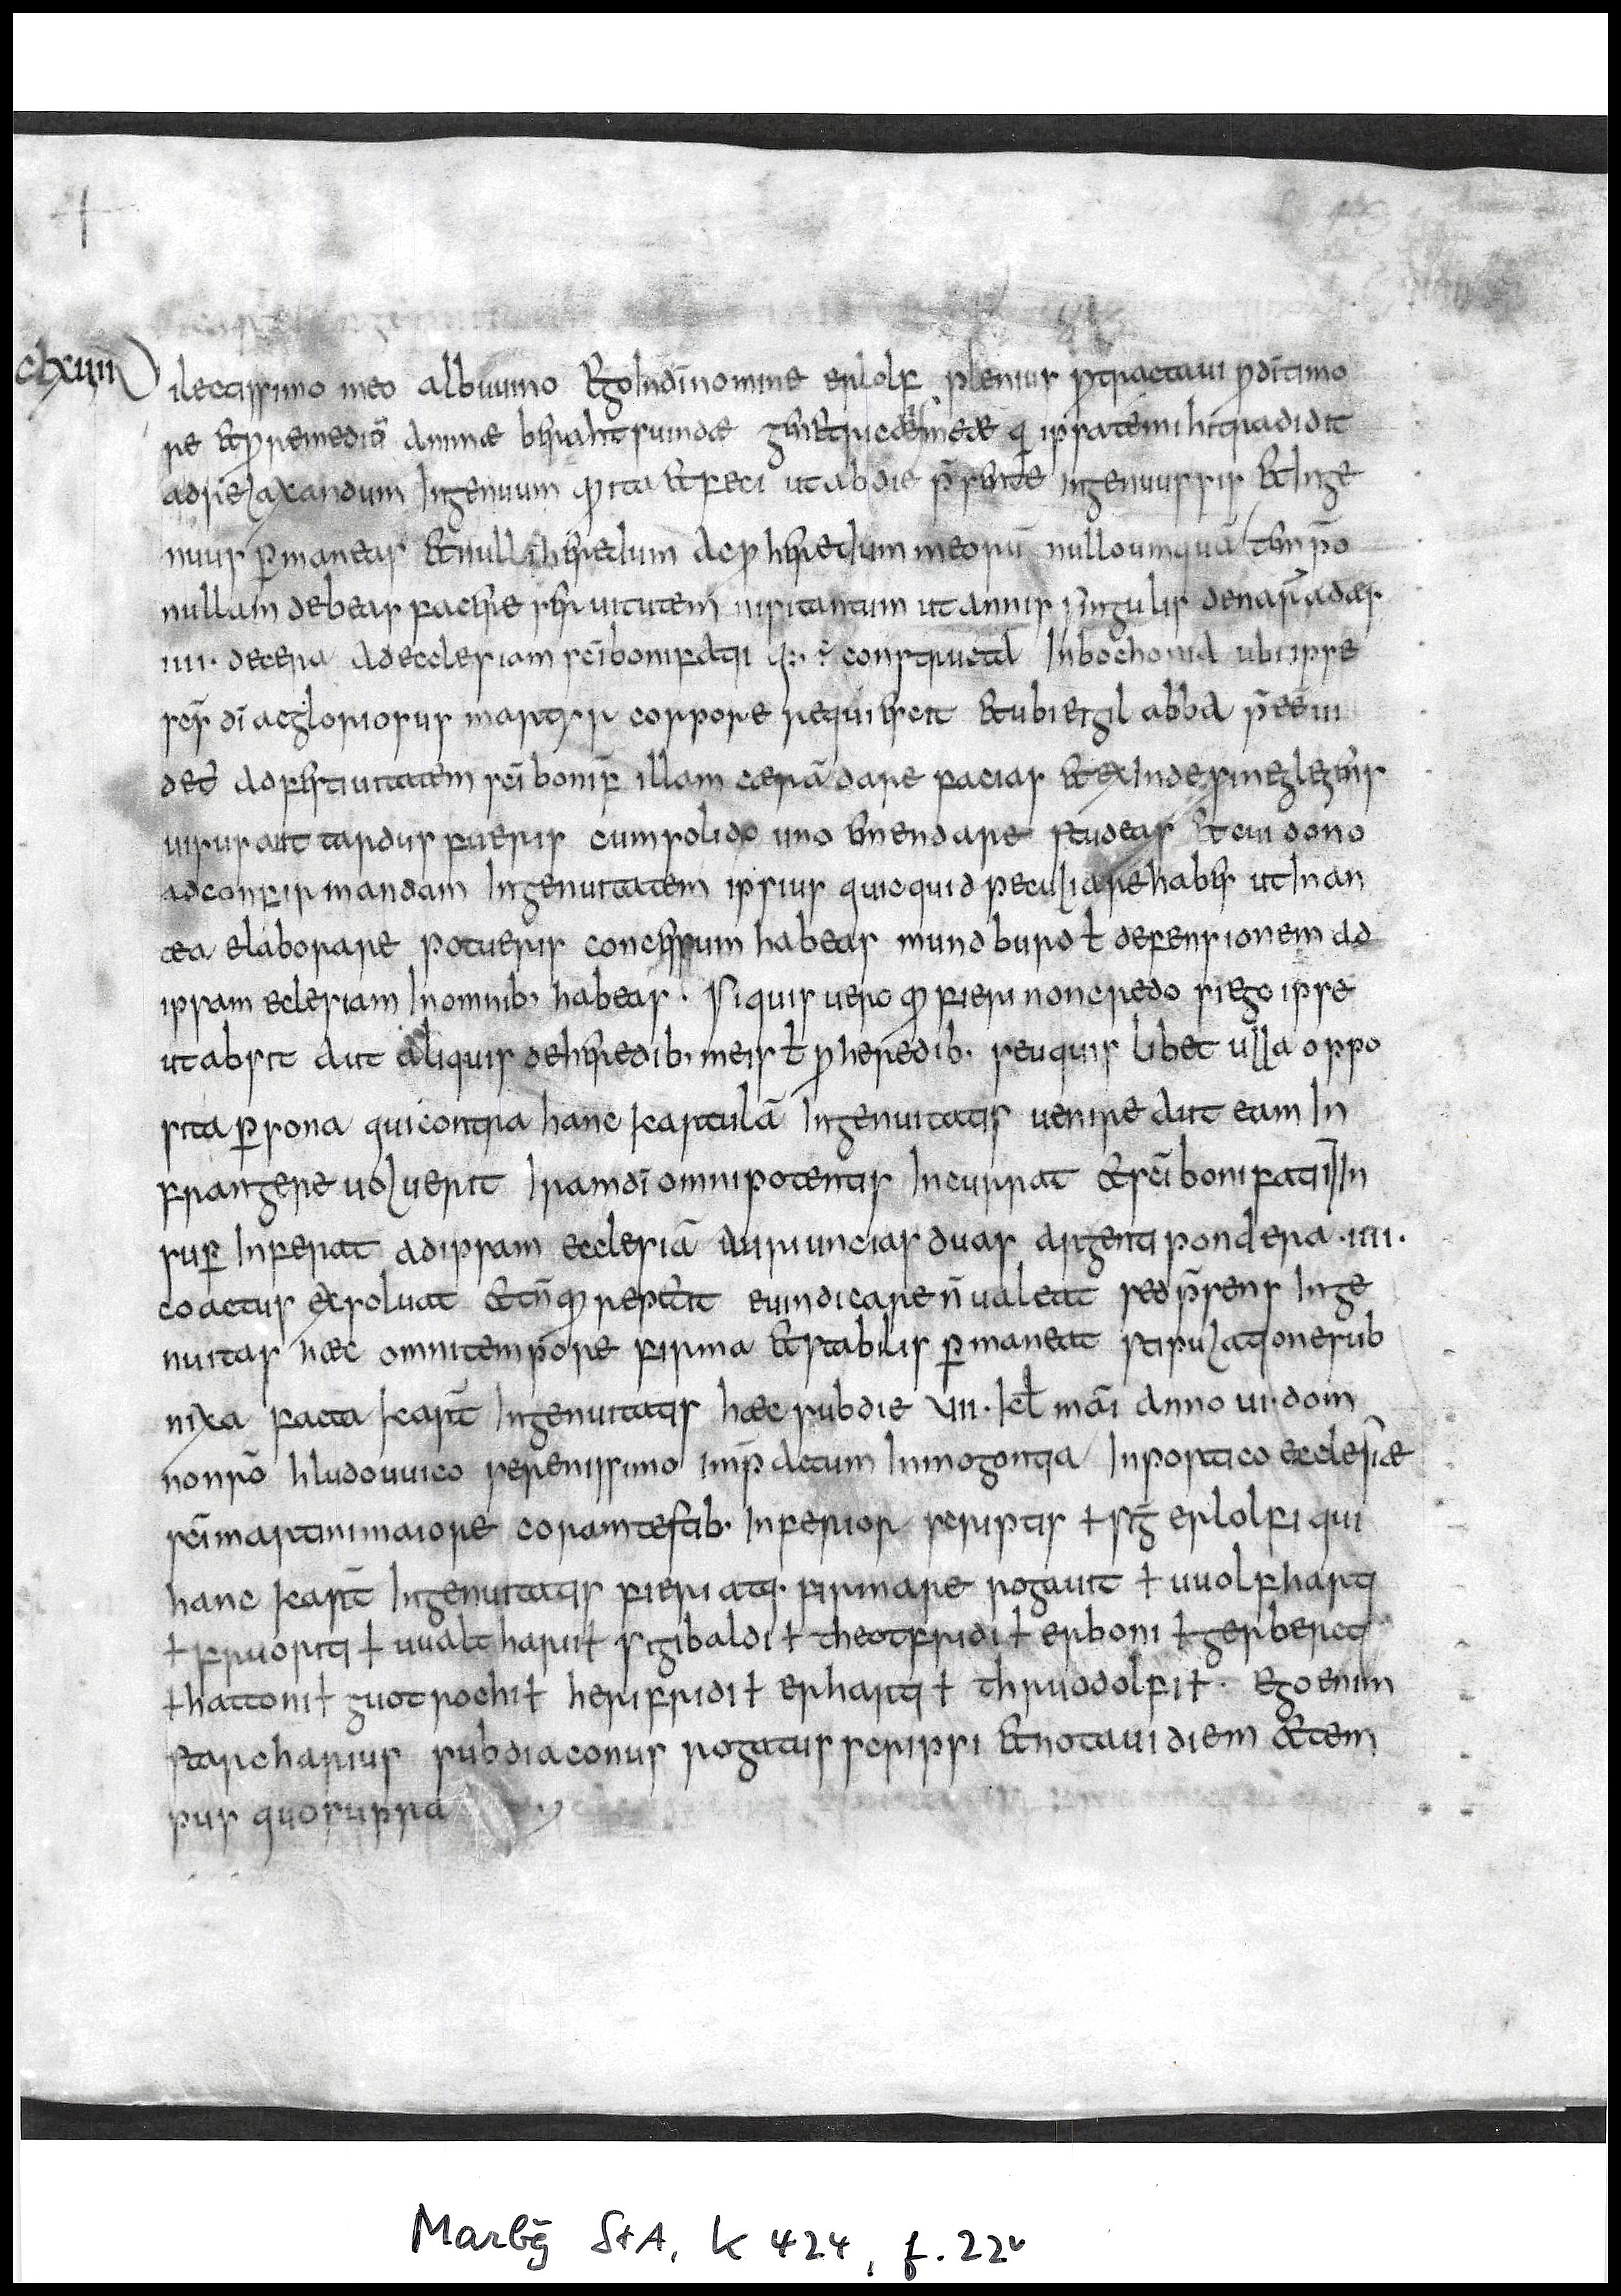 clxiiii
Dilectissimo meo albuuino Ego In dī nomine erlolf plenius ꝑtractaui ꝓ dī timo
re et ꝓ remediō animæ berahtsuindæ genetricis meæ qͥ ipsa te mihi tradidit
ad relaxandum Ingenuum ꝙ ita et feci ut ab die p̄sente Ingenuus sis et Inge
nuus ꝑmaneas et nulli heredum ac ꝓheredum meorū nullo umquā tempō
nullam debeas facere seruitutem nisi tantum ut annis singulis denar̄ ad æs
iiii. de cera ad ecclesiam sc̄i bonifatii q; ē constructa In bochonia ubi ipse
scs̄ dī ac gloriosus martyr corpore requiescit et ubi eigil abba p̄eē ui
det̄ ad festiuitatem sc̄i bonif̄ illam cerā dare facias et exInde si neglegens
uisus aut tardus fueris cum solido uno emendare studeas et cui dono
ad confirmandam Ingenuitatem ipsius quicquid peculiare habes ut In an
tea elaborare potueris concessum habeas mundburd ł defensionem ad
ipsam eclesiam In omnib; habeas. Si quis uero ꝙ fieri non credo si ego ipse
ut absit aut aliquis de heredib; meis ł ꝓheredib; seu quis libet ulla oppo
sita ꝑsona qui contra hanc kartulā Ingenuitatis uenire aut eam In
frangere uoluerit Iram dī omnipotentis Incurrat et sc̄i bonifatii In
suꝑ Inferat ad ipsam ecclesiā auri uncias duas argenti pondera .iiii.
coactus exsoluat et tn̄ ꝙ repetit euindicare n̄ ualeat sed p̄sens Inge
nuitas hæc omni tempore firma et stabilis ꝑmaneat stipulatione sub
nixa facta kart̄ Ingenuitatis hæc sub die VIII. kł mai anno ui. dom
no nr̄o hludouuico serenissimo imp̄ actum In mogontia In portico ecclesiæ
sc̄i martini maiore coram testib; Inferior scriptis + siḡ erlolfi qui
hanc kart̄ Ingenuitatis fieri atq; firmare rogauit + uuolfharti
+ fruoriti + uualtharii + sigibaldi + theotfridi + erboni + gerberct
+ hattoni + guotrochi + herifridi + erharti + thruodolfi +. Ego enim
starcharius subdiaconus rogatus scripsi et notaui diem et tem
pus quo supra
Marbg̅ StA, K 424, f. 22v